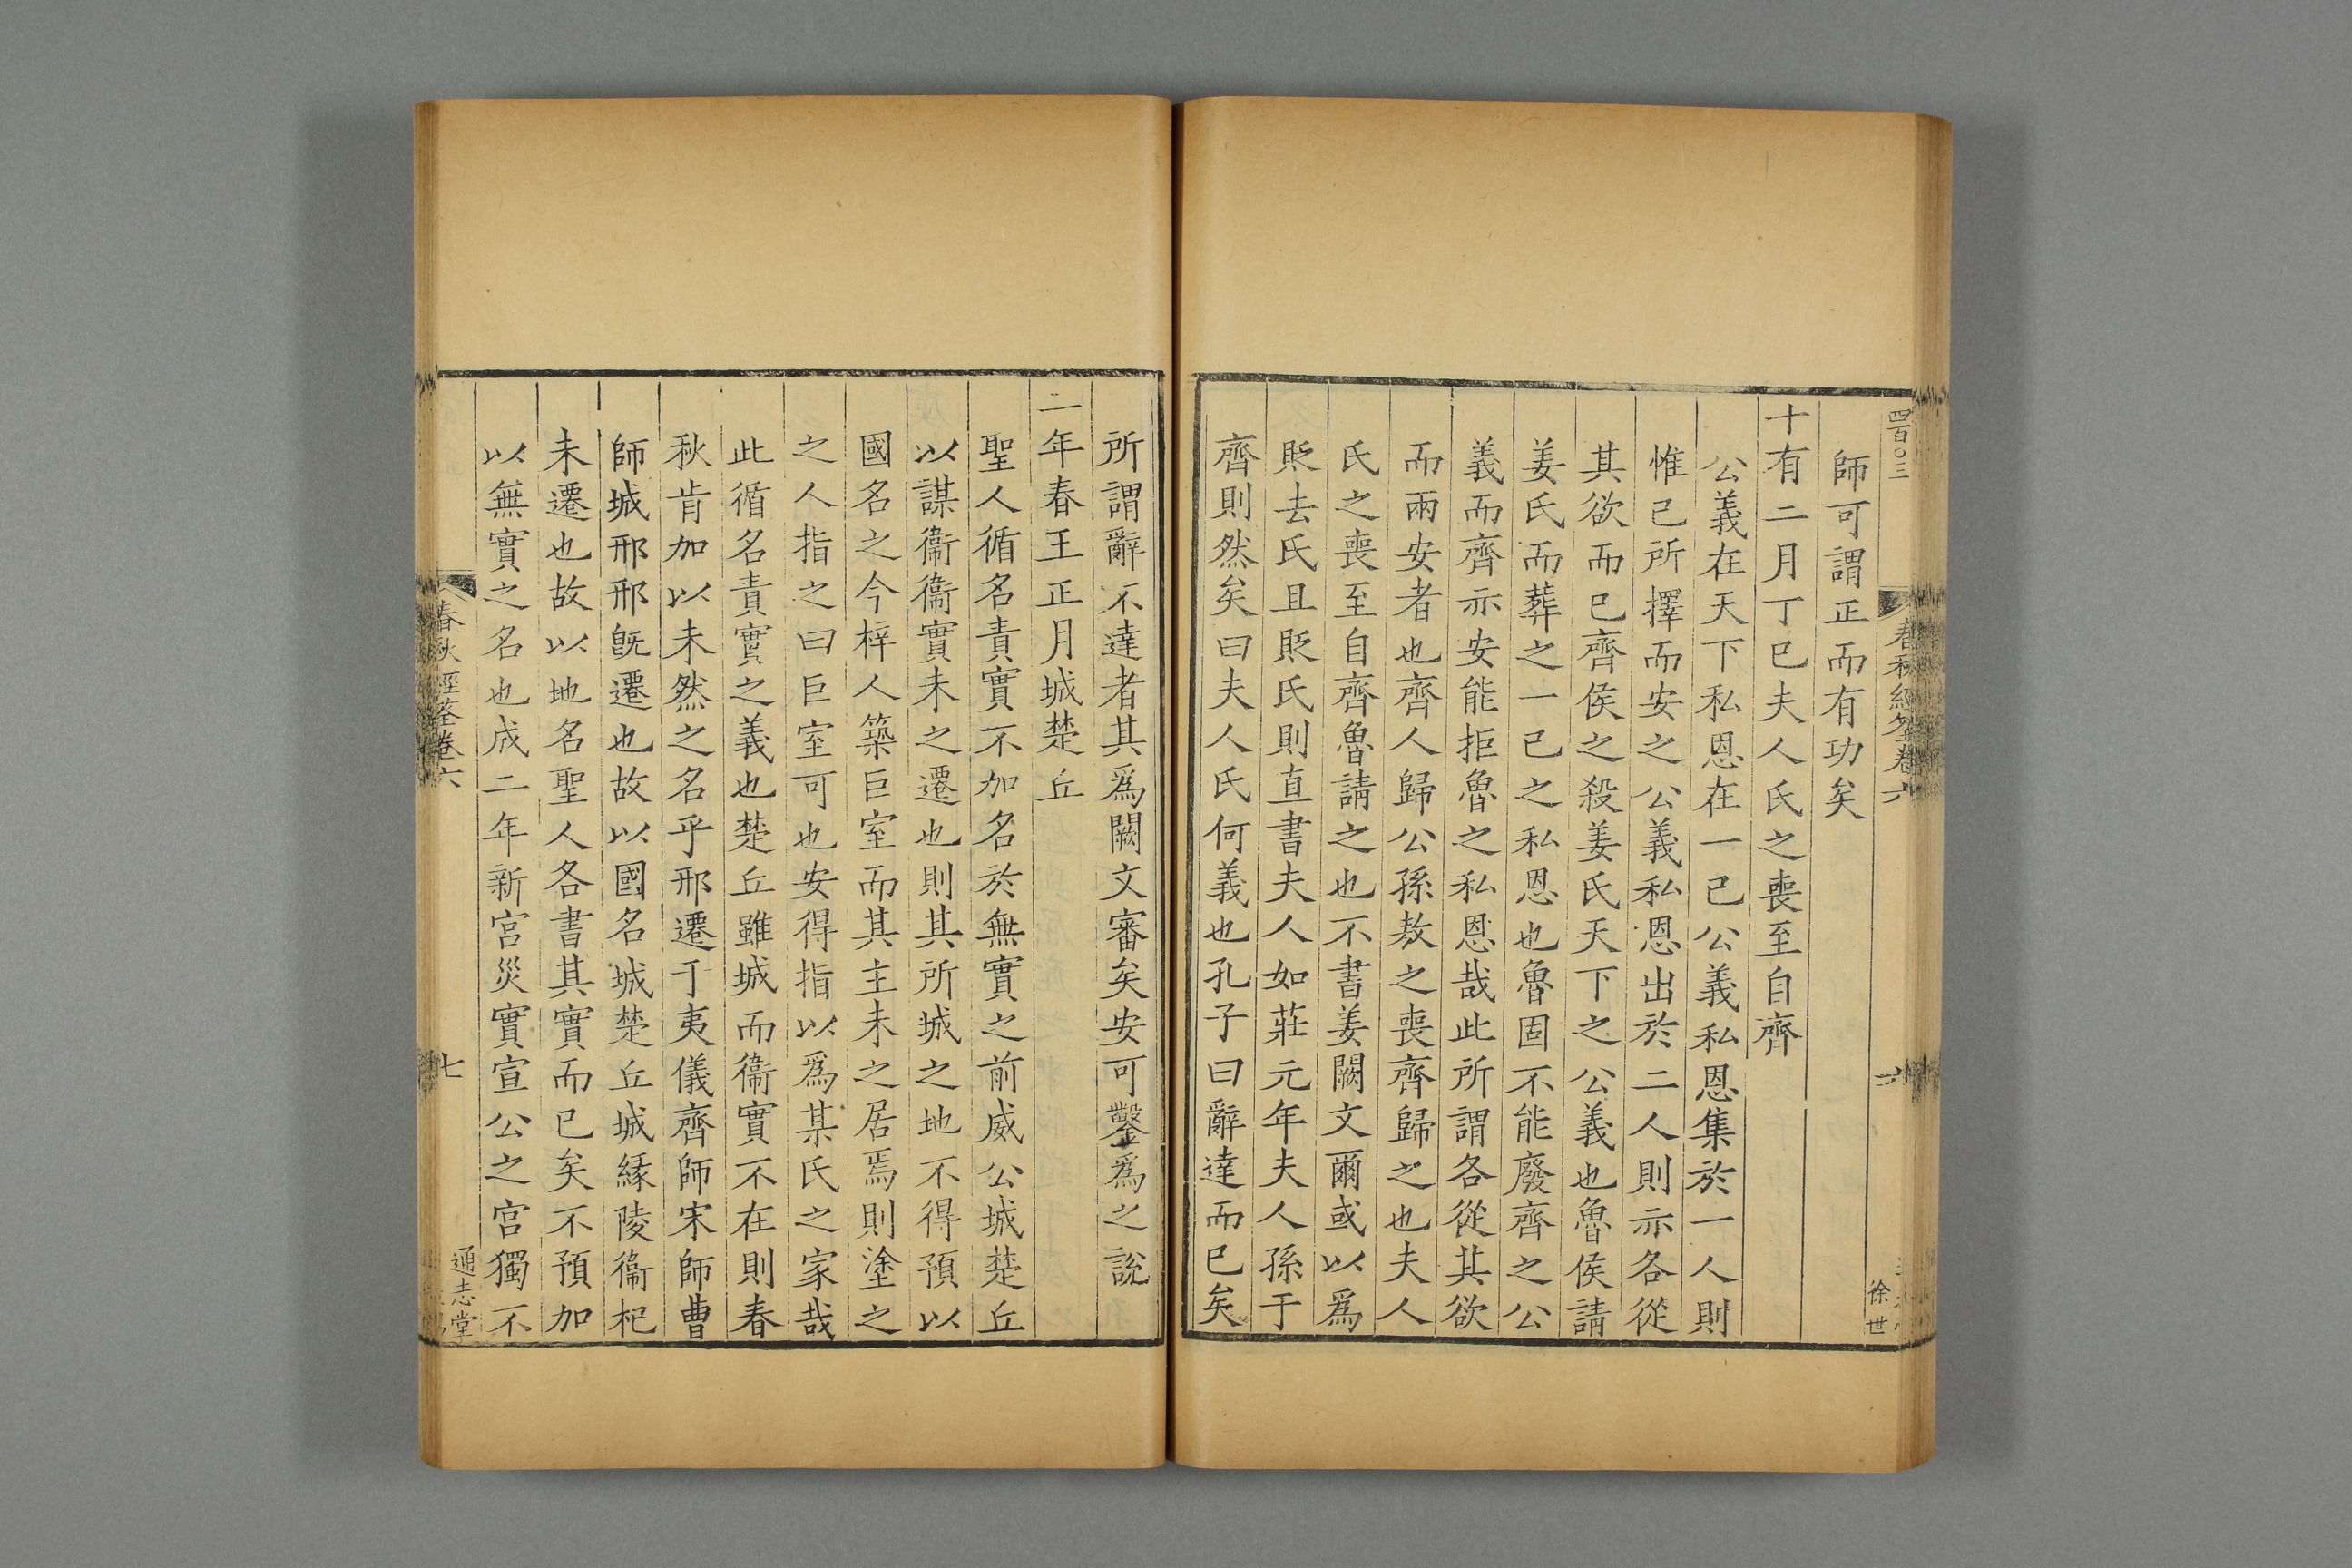 四百〇三
春秋經筌卷六
徐世
師可謂正而有功矣
十有二月丁巳夫人氏之喪至自齊
公義在天下私恩在一己公義私恩集於一人則
惟已所擇而安之公義私恩出於二人則亦各從
其欲而已齊侯之殺姜氏天下之公義也魯侯請
姜氏而葬之一己之私恩也魯固不能廢齊之公
義而齊亦安能拒魯之私恩哉此所謂各從其欲
而兩安者也齊人歸公孫敖之喪齊歸之也夫人
氏之喪至自齊魯請之也不書姜闕文爾或以為
貶去氏且貶氏則直書夫人如莊元年夫人孫于
齊則然矣曰夫人氏何義也孔子曰辭達而已矣
所謂辭不達者其爲闕文審矣安可鑿爲之說
二年春王正月城楚丘
聖人循名責實不加名於無實之前威公城楚丘
以謀衞衞實未之遷也則其所城之地不得預以
國名之今梓人築巨室而其主未之居焉則塗之
之人指之曰巨室可也安得指以爲某氏之家哉
此循名責實之義也楚丘雖城而衞實不在則春
秋肯加以未然之名乎邢遷于夷儀齊師宋師曹
師城邢邢旣遷也故以國名城楚丘城緣陵衞杞
未遷也故以地名聖人各書其實而已矣不預加
以無實之名也成二年新宮災實宣公之宮獨不
春秋經筌卷六
七
通志堂